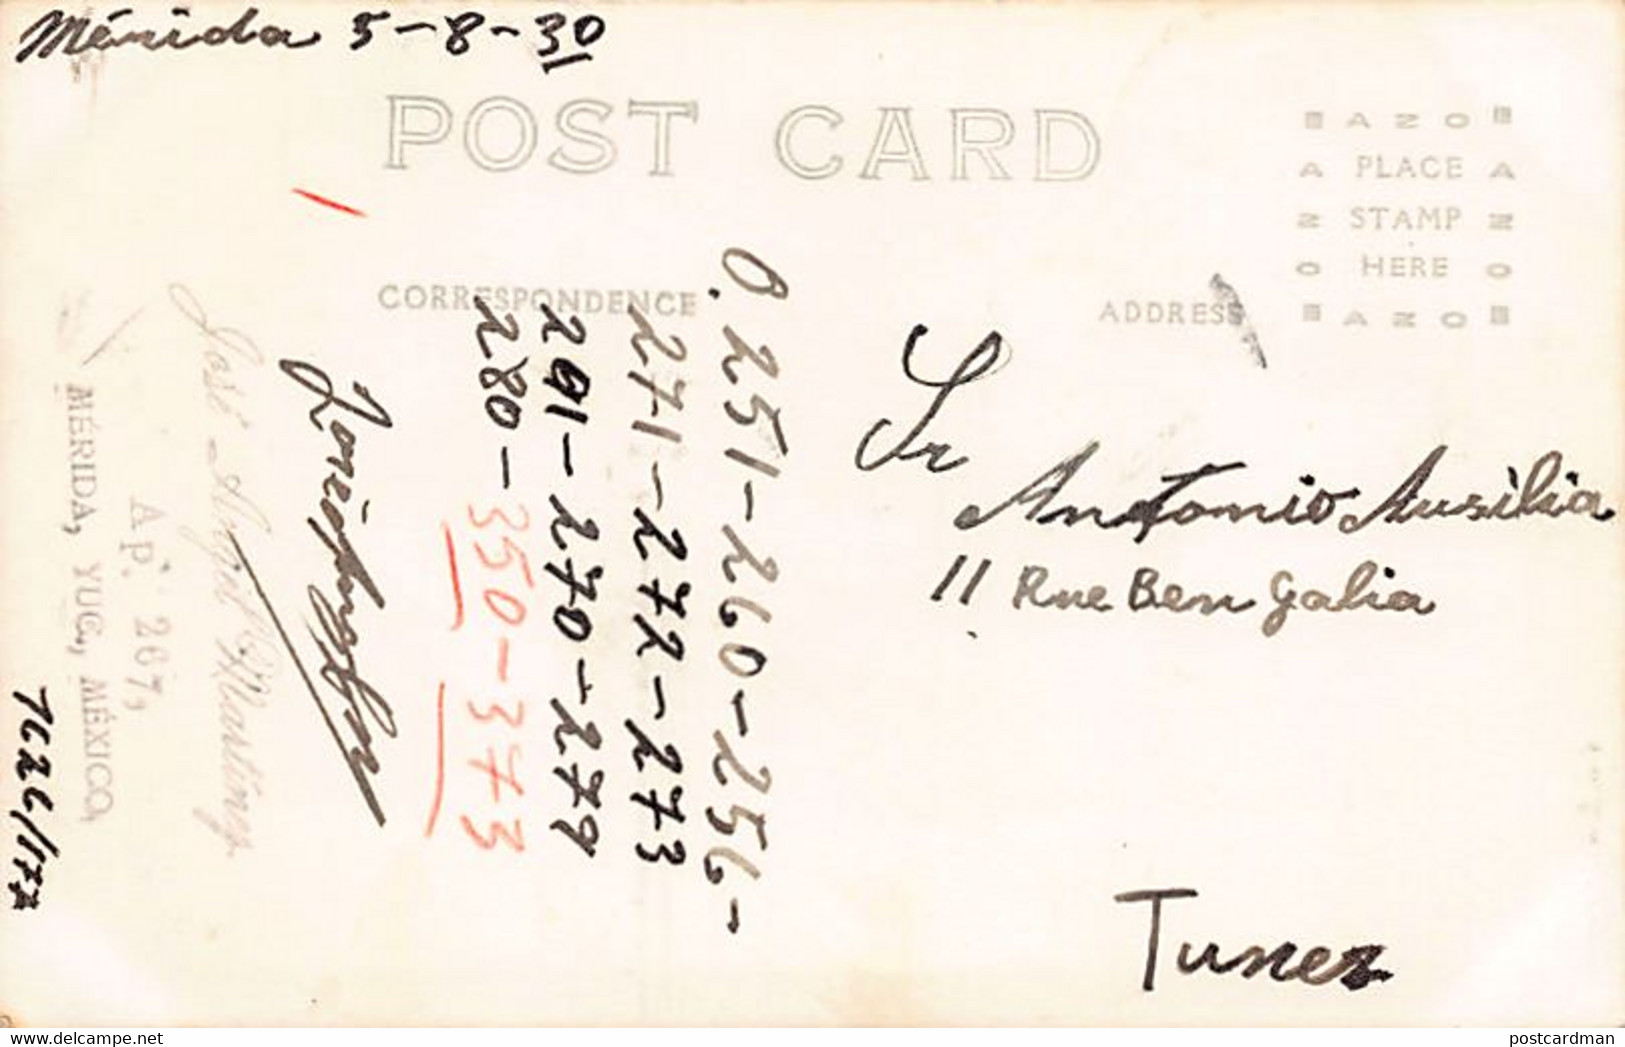 Mérida 5-8-30
POST CARD
AZO
PLACE
STAMP
HERE
AZO
CORRESPONDENCE
ADDRESS
0.251-260-256-
271-272-273
291-270-279
280-350-373
José Angel Martínez
Ap. 267,
MÉRIDA, YUC., MÉXICO,
Sr
Antonio Ausilia
11 Rue Ben Galia
Tunez
delcampe.net
postcardman